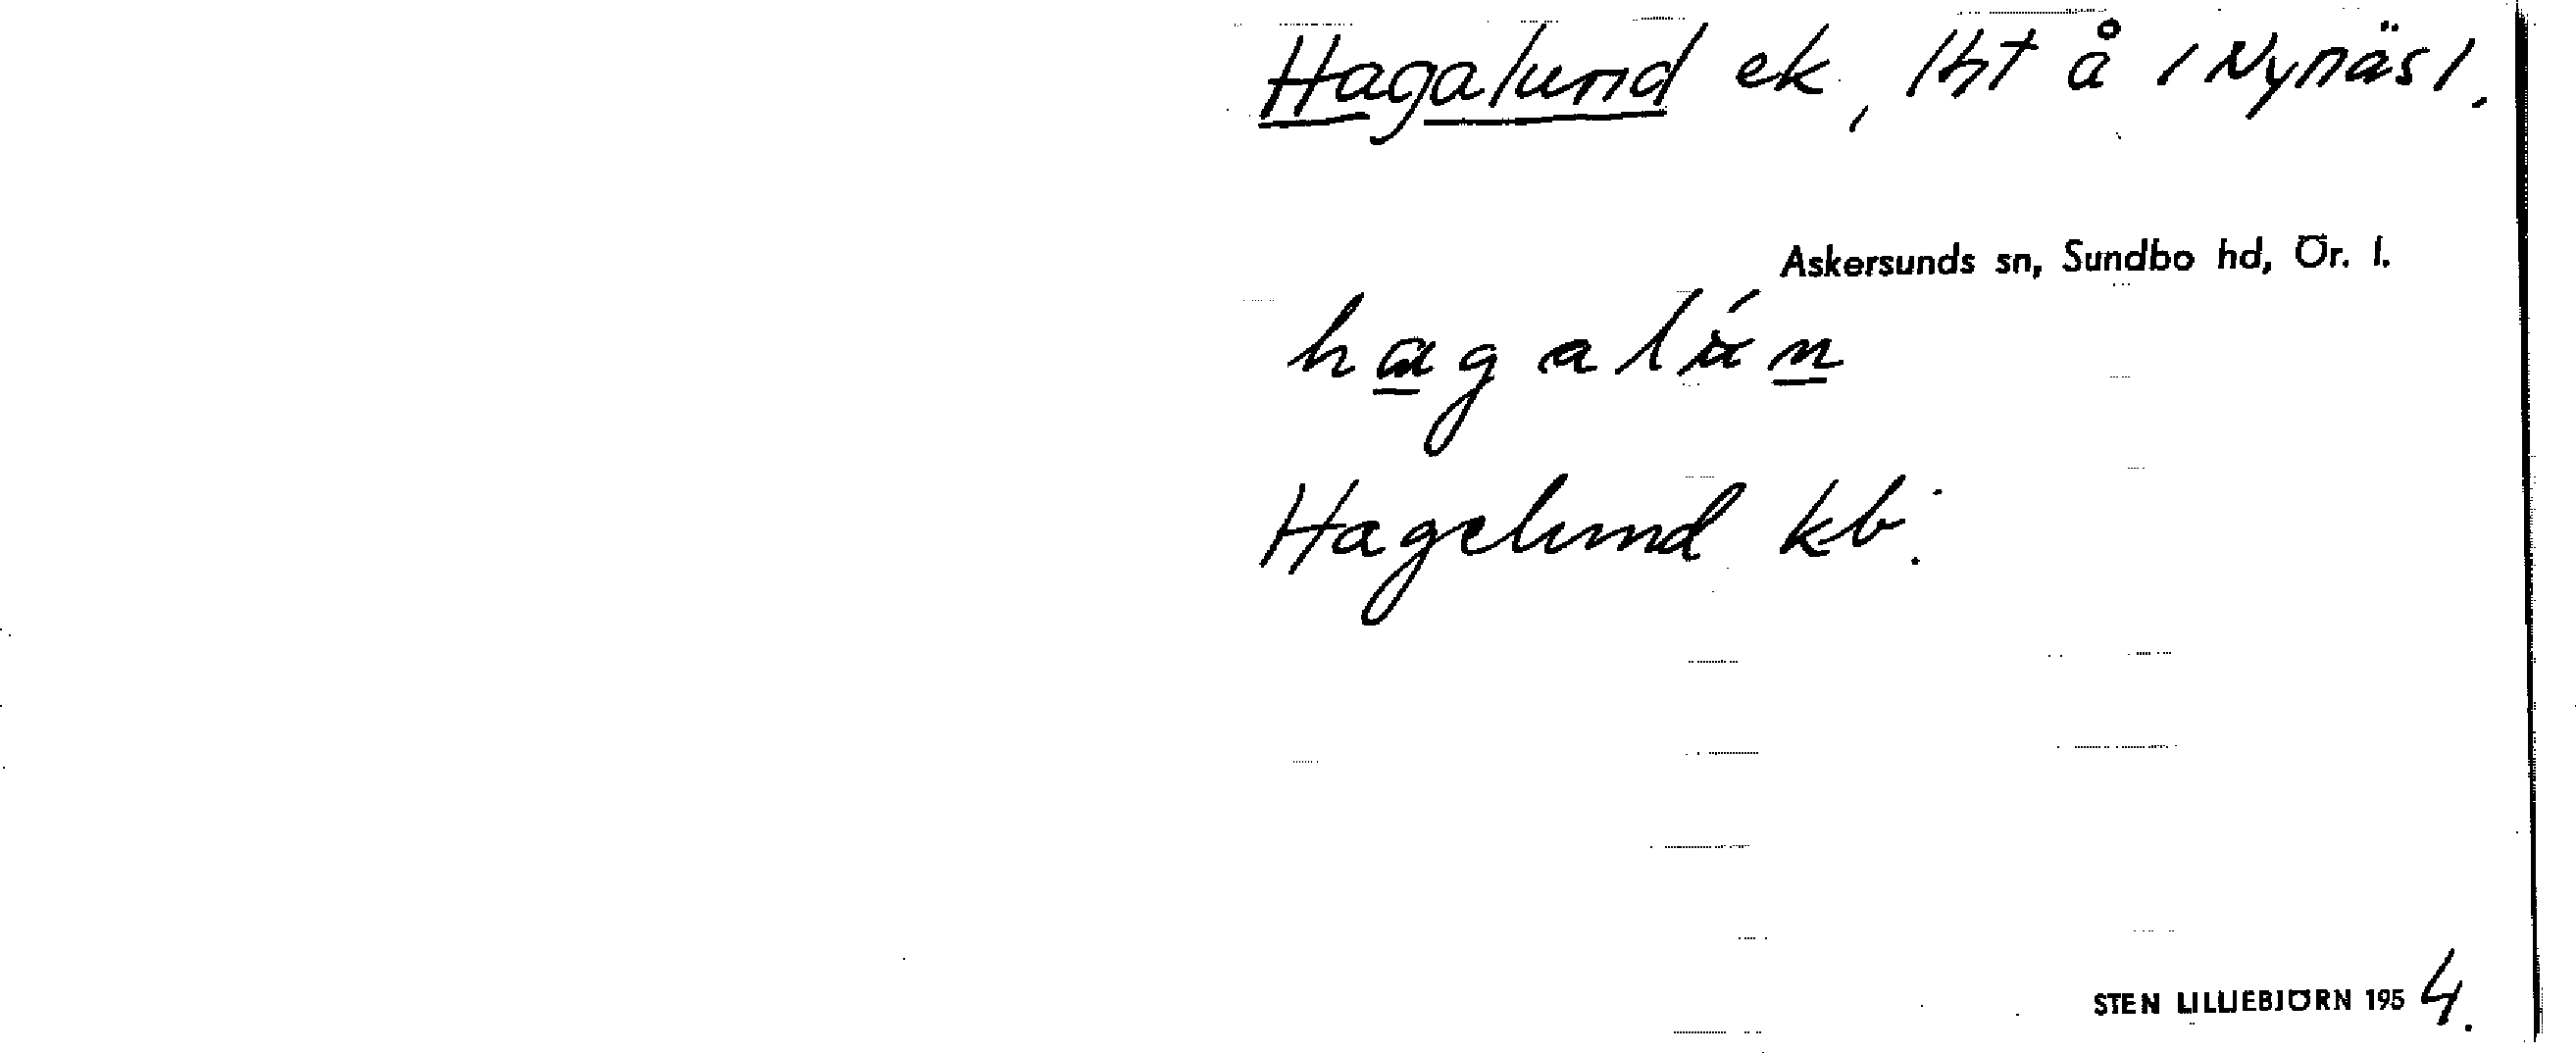 Hagalund ek, lht å 1 Nynäs 1.
Askersunds sn, Sundbo hd, Ör. l.
Hagelund kb.
STEN LILLJEBJÖRN 1954.